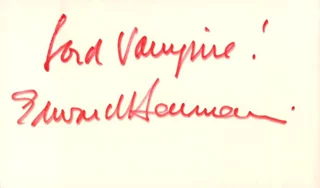 Lord Vampire!
Edward Herrmann